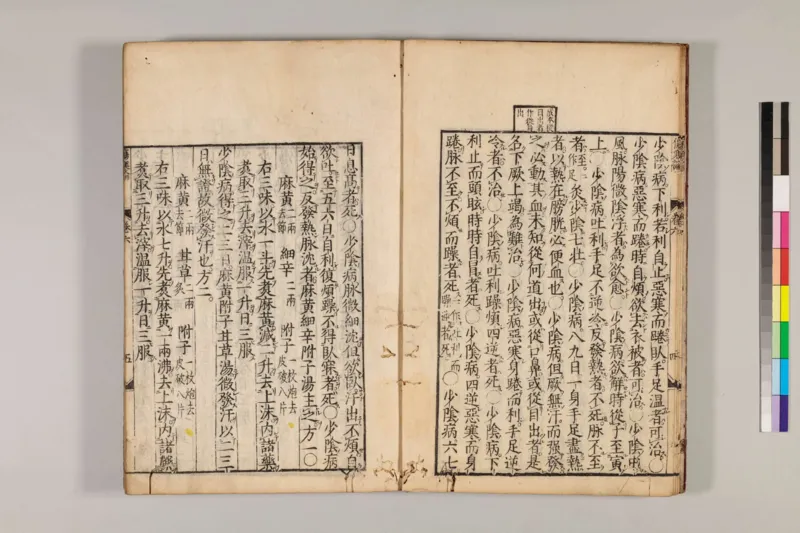 少陰病下利若利自止惡寒而踡臥手足溫者可治〇
少陰病惡寒而踡時自煩欲去衣被者可治〇少陰中
風脈陽微陰浮者為欲愈〇少陰病欲解時從子至寅
上〇少陰病吐利手足不逆冷反發熱者不死脈不至
者至一作足灸少陰七壯〇少陰病八九日一身手足盡熱
者以熱在膀胱必便血也〇少陰病但厥無汗而強發
之必動其血未知從何道出或從口鼻或從目出者是
名下厥上竭為難治〇少陰病惡寒身踡而利手足逆
冷者不治〇少陰病吐利躁煩四逆者死〇少陰病下
利止而頭眩時時自冒者死〇少陰病四逆惡寒而身
踡脈不至不煩而躁者死一作吐利而躁逆者死〇少陰病六七
日息高者死〇少陰病脈微細沈但欲臥汗出不煩自
欲吐至五六日自利復煩躁不得臥寐者死〇少陰病
始得之反發熱脈沈者麻黃細辛附子湯主之方一〇
麻黃二兩去節 細辛二兩 附子一枚炮去皮破八片
右三味以水一斗先煮麻黃減一升去上沫內諸藥
煮取三升去滓溫服一升日三服
少陰病得之二三日麻黃附子甘草湯微發汗以二三
日無證故微發汗也方二
麻黃二兩去節 甘草二兩炙 附子一枚炮去皮破八片
右三味以水七升先煮麻黃一兩沸去上沫內諸藥
煮取三升去滓溫服一升日三服
卷六
五